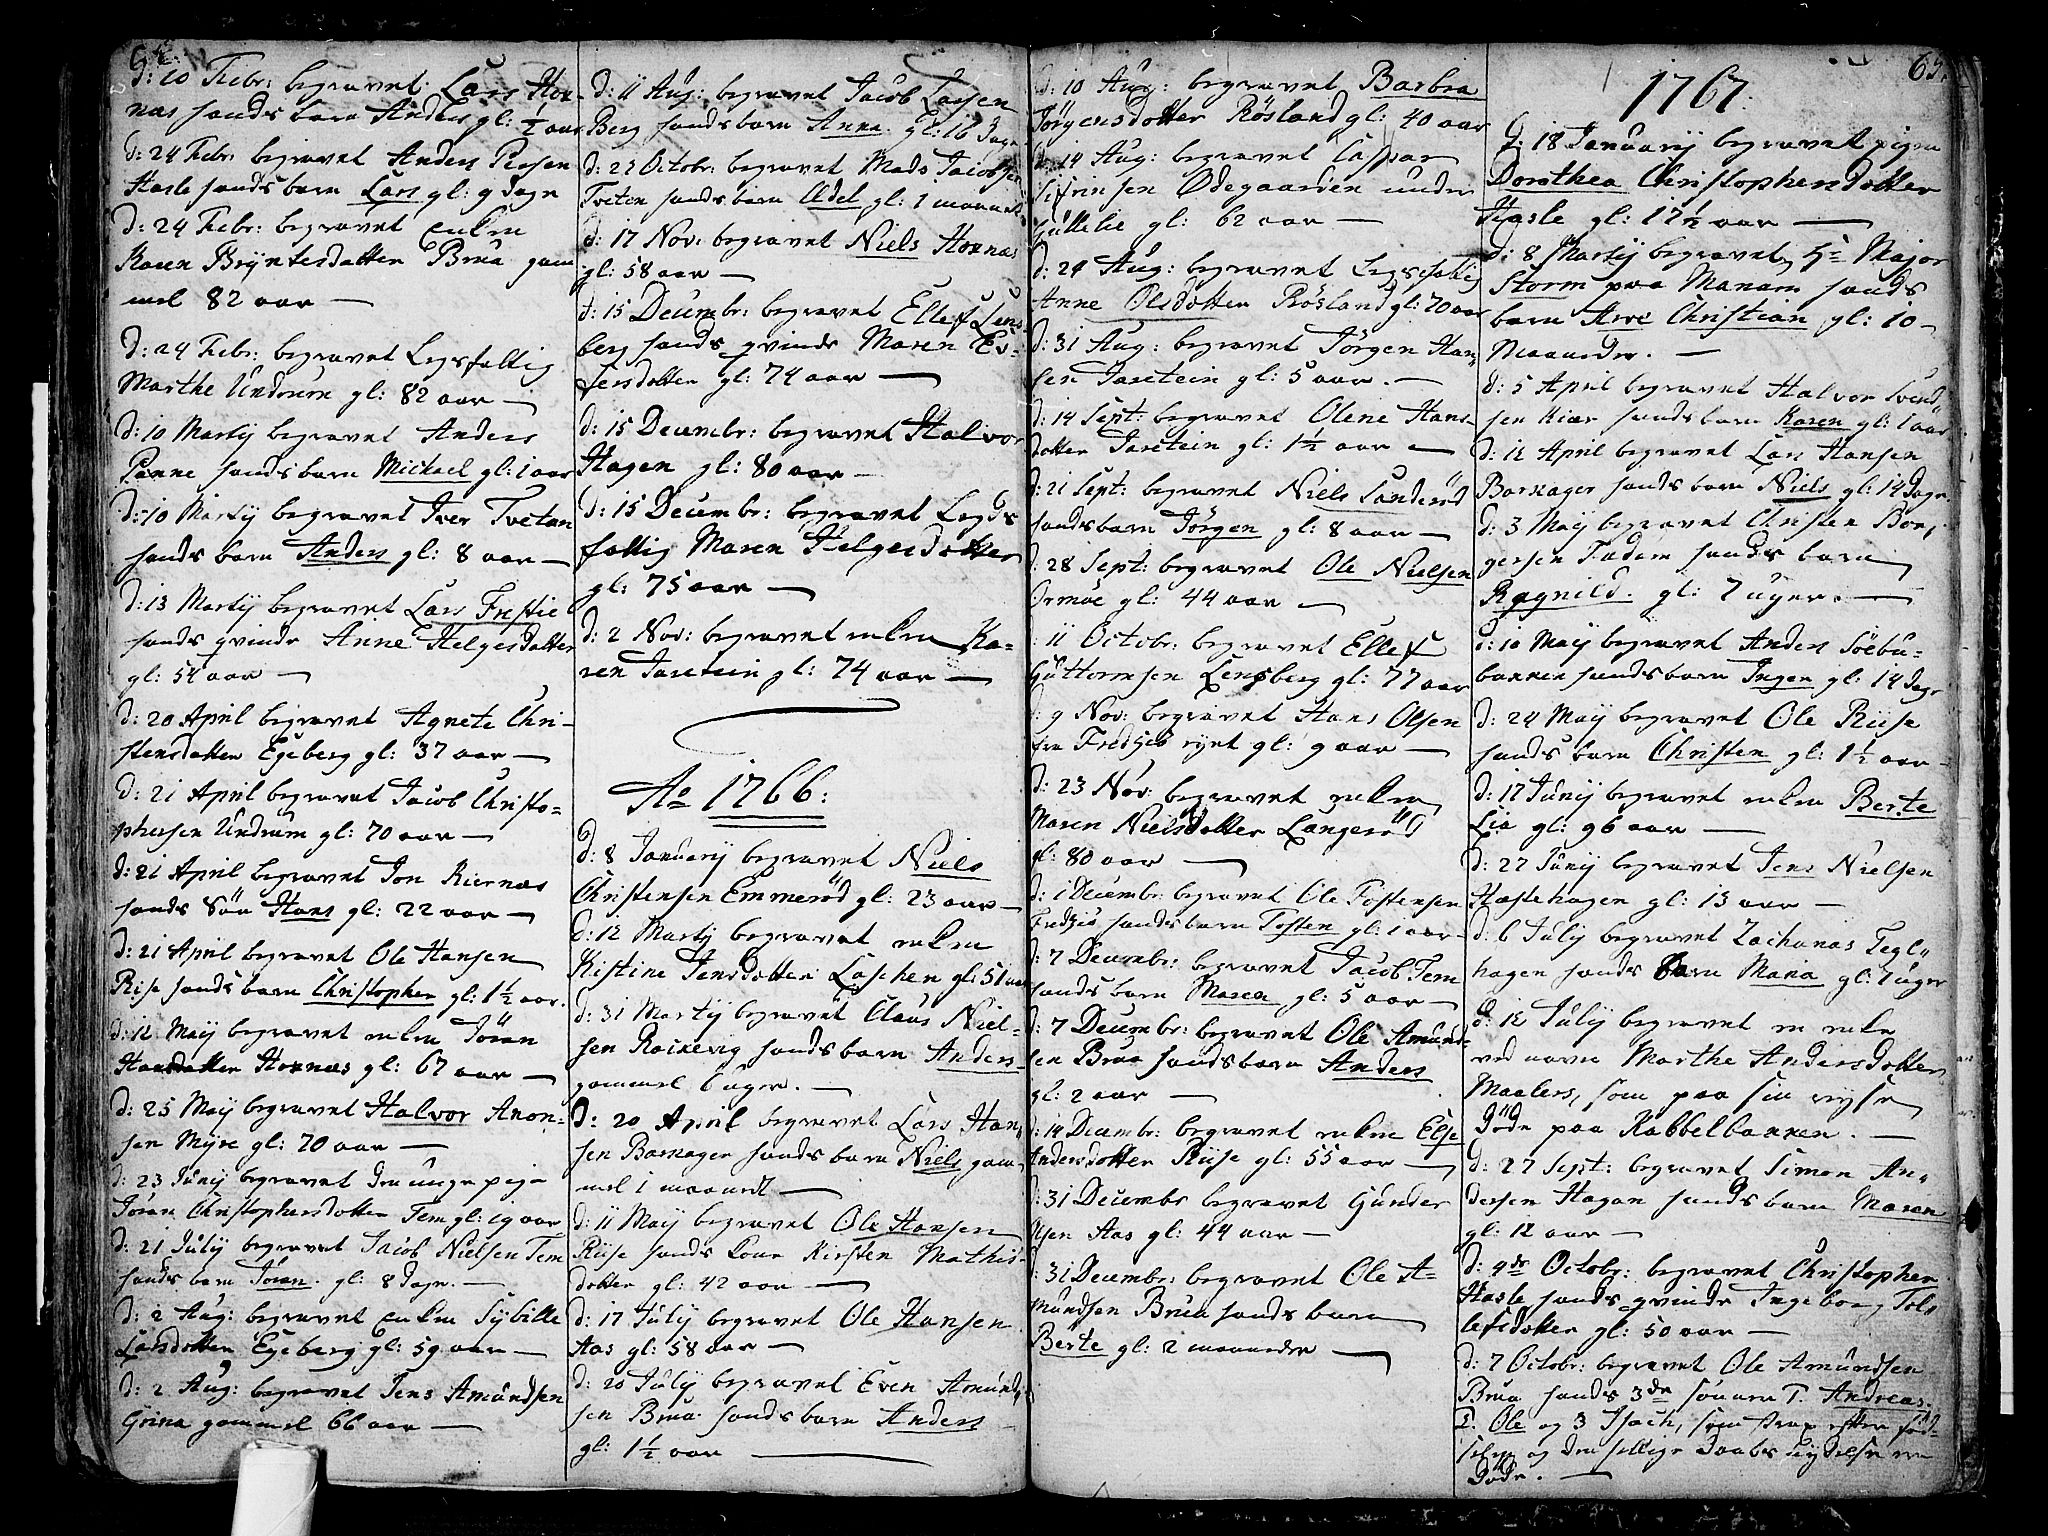 d: 10 Febr: begravet Lars Hox-
næs hands barn Anders gl: ½ aar
d: 24 Febr: begravet Anders Persen
Hasle hands barn Lars gl: 9 dage
d: 24 Febr: begravet enken
Karen Bryntesdatter Brua gam
mel 82 aar —
d: 24 Febr: begravet Legsfattig
Marthe Undrum gl: 82 aar —
d: 10 Martij begravet Anders
hands barn Michael gl: 1 aar
d: 10 Martij begravet Iver Tvetan
hands barn Anders gl: 8 aar —
d: 13 Martij begravet Lars Frestie
hands qvinde Anne Helgesdatter
gl: 54 aar —
d: 20 April begravet Agnete Chri-
stensdatter Egeberg gl: 37 aar —
d: 21 April begravet Jacob Christo-
phersen Undrum gl: 70 aar —
d: 21 April begravet Jon Kiernæs
hands Søn Hans gl: 22 aar —
d: 21 April begravet Ole Hansen
Riise hands barn Christopher gl: 1½ aar.
d: 12 Maij begravet enken Jöran
Hansdatter Hoxnæs gl: 67 aar —
d: 25 Maij begravet Halvor Anon-
sen Myre gl: 70 aar —
d: 23 Junij begravet den unge pige
Jöran Christophersdatter Tem gl: 19 aar
d: 21 Julij begravet Jacob Nielsen Tem
hands barn Jöran. gl: 8 dage. —
d: 2 Aug: begravet enken Sybille
Larsdatter Egeberg gl: 59 aar —
d: 2 Aug: begravet Jens Amundsen
Grina gammel 66 aar —
d: 11 Aug: begravet Jacob Larsen
Berg hands barn Anne. gl: 16 dage
d: 22 Octobr: begravet Mads Jacobsen
Tveten hands barn Adel gl: 1 maaned
d: 17 Nov: begravet Niels Hoxnæs
gl: 58 aar —
d: 15 Decembr: begravet Ellef Lens-
berg hands qvinde Maren Ev-
fersdatter gl: 74 aar —
d: 15 Decembr: begravet Halvor
Hagen gl: 80 aar —
d: 15 Decembr: begravet Legds
fattig Maren Helgesdatter
gl: 75 aar —
d: 2 Nov: begravet enken Ka-
ren Jaretein gl: 74 aar —
Ao 1766:
d: 8 Januarij begravet Niels
Christensen Emmeröd gl: 23 aar —
d: 12 Martij begravet enken
Kistine Jensdatter Laschen gl: 51 aar
d: 31 Martij begravet Claus Niel-
sen Rackevig hands barn Anders
gammel 6 uger. —
d: 20 April begravet Lars Han-
sen Barkager hands barn Niels gam-
mel 1 maaned —
d: 11 Maij begravet Ole Hansen
Riise hands Kone Kirsten Mathis-
datter gl: 42 aar —
d: 17 Julij begravet Ole Hansen
Aas gl: 58 aar —
d: 20 Julij begravet Even Amund-
sen Brua hands barn Anders
gl: 1½ aar —
d: 10 Aug: begravet Barbra
Jörgensdatter Rösland gl: 40 aar
d: 14 Aug: begravet Caspar
Sifrinsen Ødegaarden under
Guttelie gl: 62 aar —
d: 24 Aug: begravet Legsfattig
Anne Olsdatter Rösland gl: 70 aar
d: 31 Aug: begravet Jörgen Han-
sen Jaretein gl: 5 aar. —
d: 14 Sept: begravet Olene Hans
datter Jaretein gl: 1½ aar —
d: 21 Sept: begravet Niels Sanderöd
hands barn Jörgen gl: 8 aar —
d: 28 Sept: begravet Ole Nielsen
Ormöe gl: 44 aar —
11 Octobr: begravet Ellef
Guttormsen Lensberg gl: 77 aar
d: 9 Nov: begravet Hans Olsen
gl: 9 aar —
d: 23 Nov: begravet enken
Maren Nielsdatter Langeröd
gl: 80 aar —
d: 1 Decembr: begravet Ole Tostensen
hands barn Tosten gl: 1 aar
d: 7 Decembr: begravet Jacob Tem
hands barn Maren gl: 5 aar —
d: 7 Decembr: begravet Ole Amund-
sen Brua hands barn Anders
gl: 2 aar —
d: 14 Decembr: begravet enken Else
Andersdatter Riise gl: 55 aar —
d: 31 Decembr begravet Gunder
Olsen Aas gl: 44 aar —
d: 31 Decembr: begravet Ole A-
mundsen Brua hands barn
Berte gl: 2 maaneder —
65
1767.
d: 18 Januarij begravet pigen
Dorothea Christophersdatter
Hasle gl: 17½ aar —
d: 8 Martij begravet Hr Major
Storm paa Manam hands
barn Arve Christian gl: 10
Maaneder. —
d: 5 April begravet Halvor Svend-
sen Kiær hands barn Karen gl: 1 aar
d: 12 April begravet Lars Hansen
Barkager hands barn Niels gl: 14 dage
d: 3 Maij begravet Christen Bor-
gersen Fadum hands barn
Ragnild. gl: 7 uger. —
d: 10 Maij begravet Anders Söebu-
backen hands barn Inger gl: 14 dage
d: 24 Maij begravet Ole Riise
hands barn Christen gl: 1½ aar —
d: 17 Junij begravet enken Berte
Lia gl: 96 aar —
d: 27 Junij begravet Jens Nielsen
Hastehagen gl: 13 aar —
d: 6 Julij begravet Zacharias Tegl-
hagen hands barn Maria gl: 1 uger
d: 12 Julij begravet en enke
ved navn Marthe Andersdatter
Maalers, som paa sin reyse
döde paa Kabbelbakken. —
d: 27 Sept: begravet Simon An-
dersen Hagan hands barn Maren
gl: 12 aar —
d: 4de Octobr: begravet Christopher
Hasle hands qvinde Ingeborg Tol-
lefsdatter gl: 50 aar —
d: 7 Octobr: begravet Ole Amundsen
Brua hands 3de sönner 1. Andreas.
2. Ole og 3 Isach, som strax efter fød-
selen og den hellige Daabs nydelse ere
Døde. —